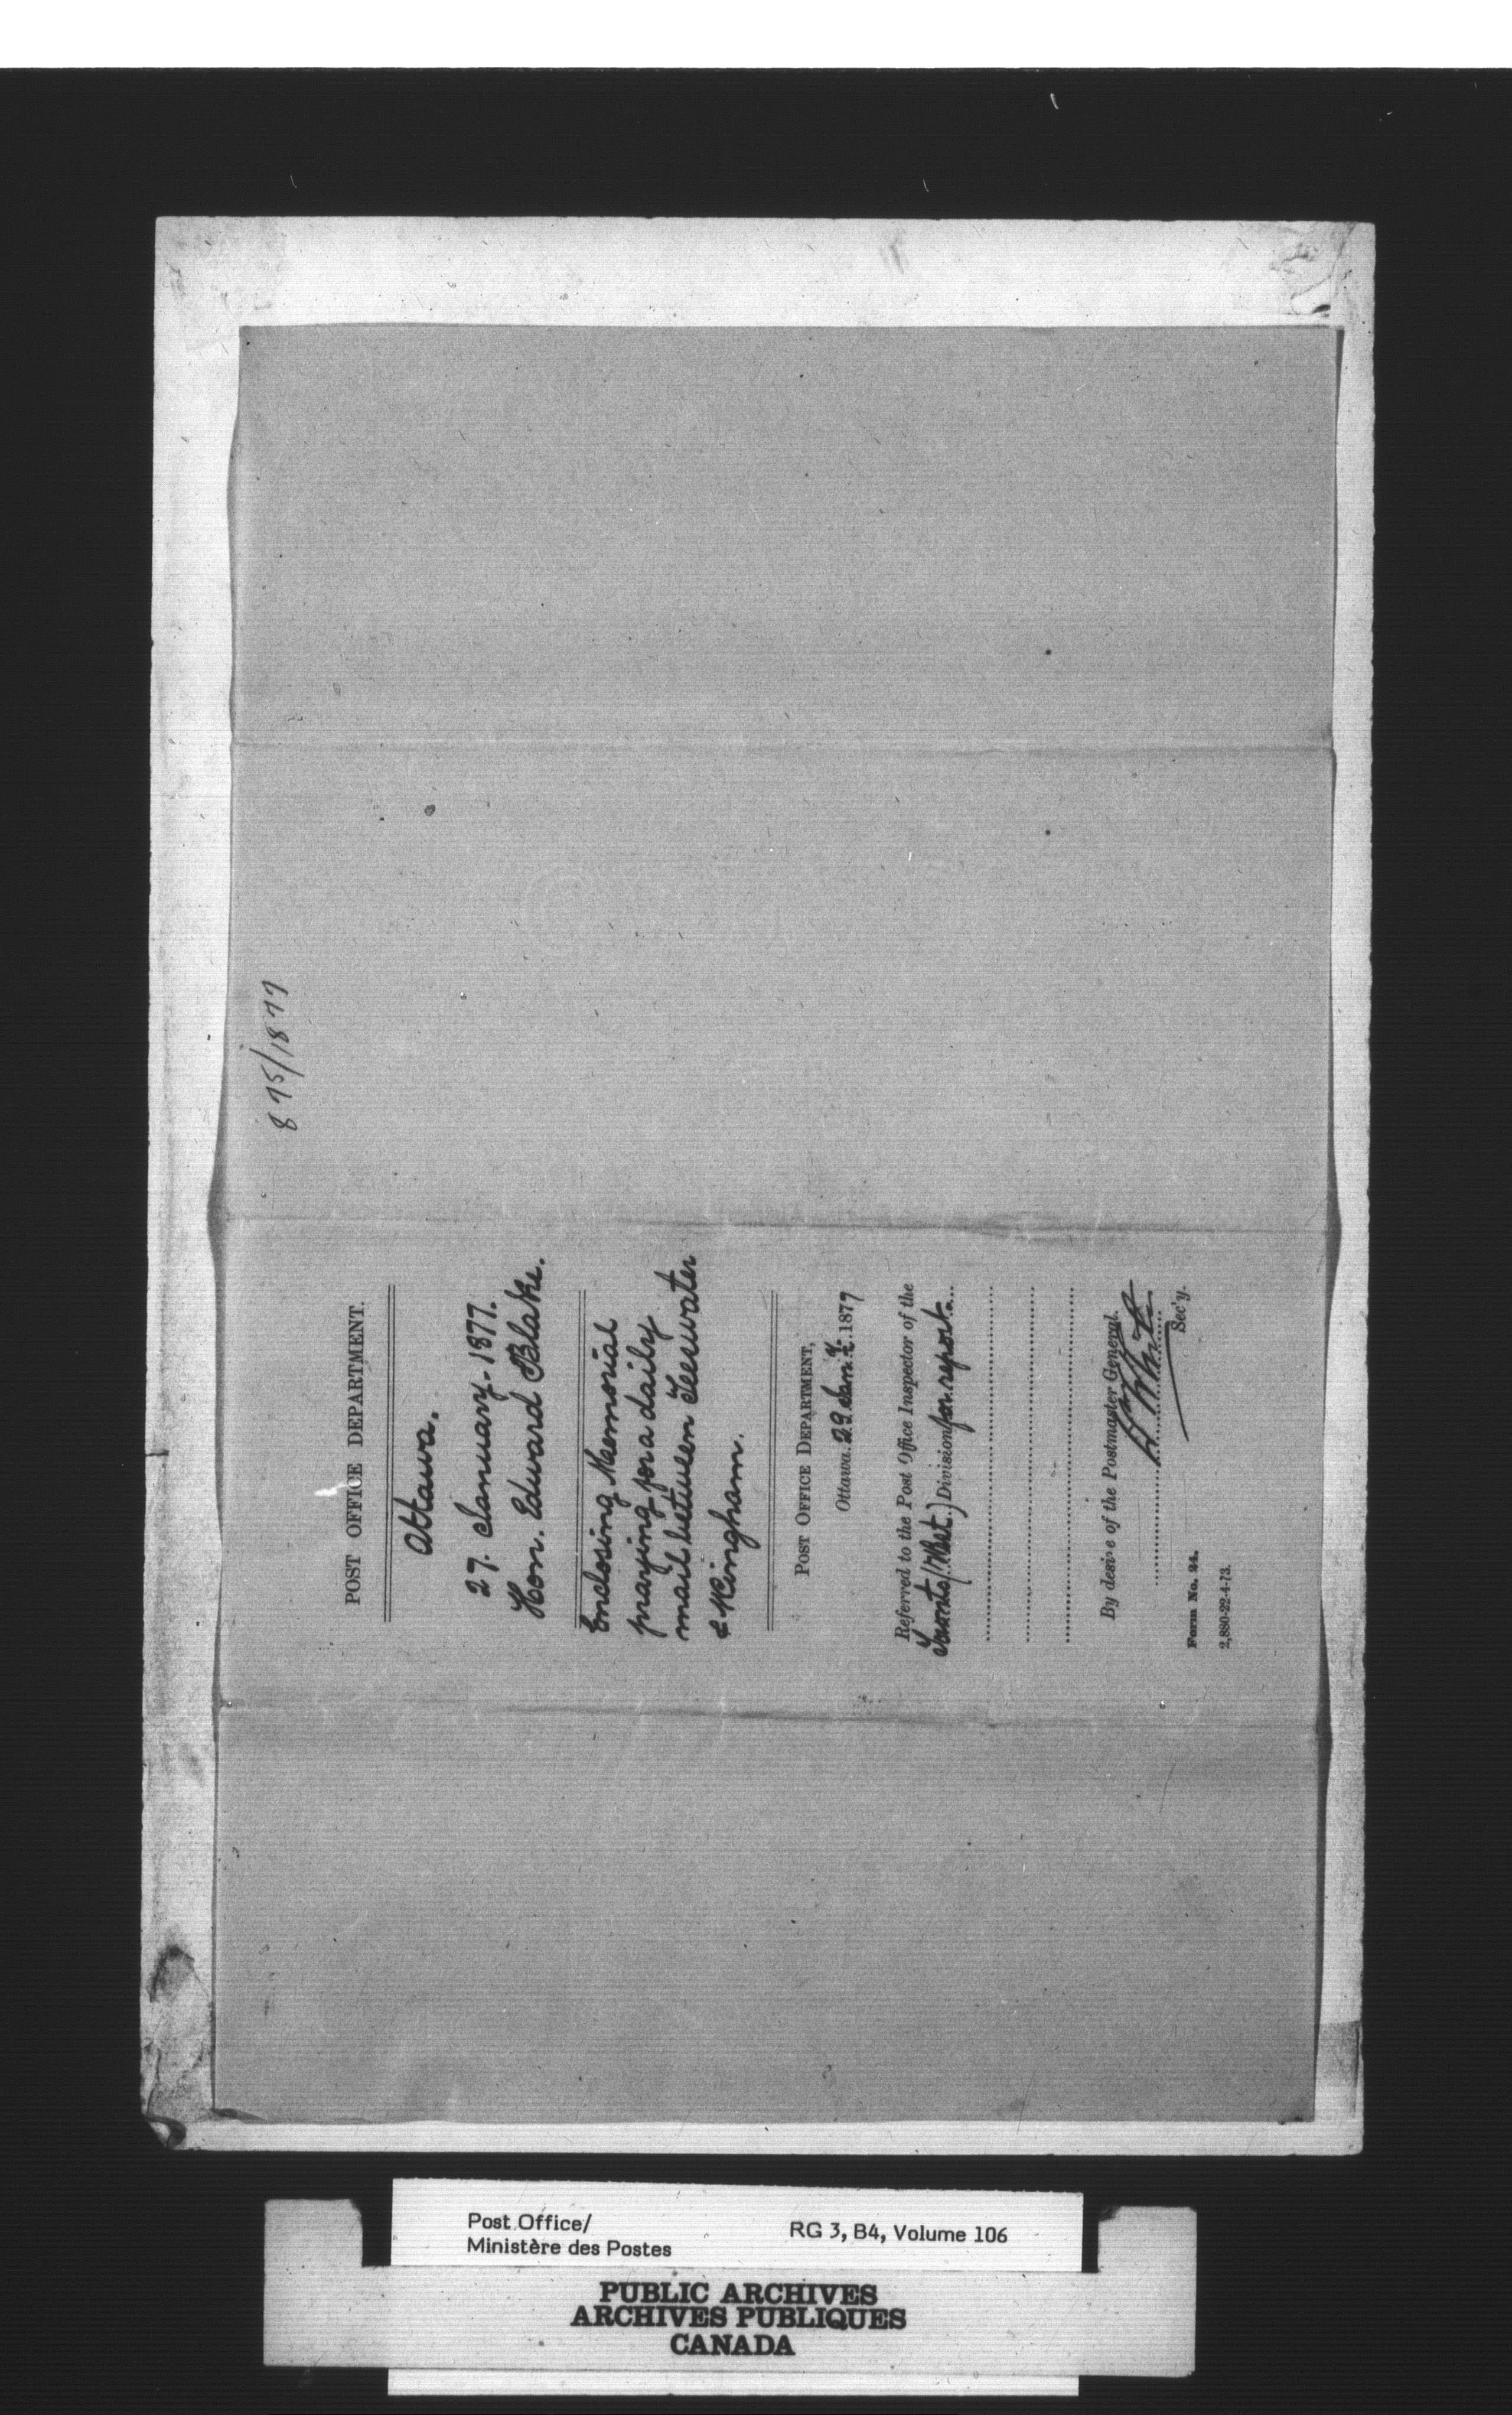 875/1877
POST OFFICE DEPARTMENT.
Ottawa.
27. January. 1877.
Hon. Edward Blake.
Enclosing Memorial
praying for a daily
mail between Teeswater
& Wingham.
POST OFFICE DEPARTMENT,
Ottawa. 29. Jany. 1877
Referred to the Post Office Inspector of the
Toronto (West.) Division for report.
By desire of the Postmaster General.
Sec'y.
Form No. 24.
2,880-22-4-73.
Post Office/
Ministère des Postes
RG 3, B4, Volume 106
PUBLIC ARCHIVES
ARCHIVES PUBLIQUES
CANADA